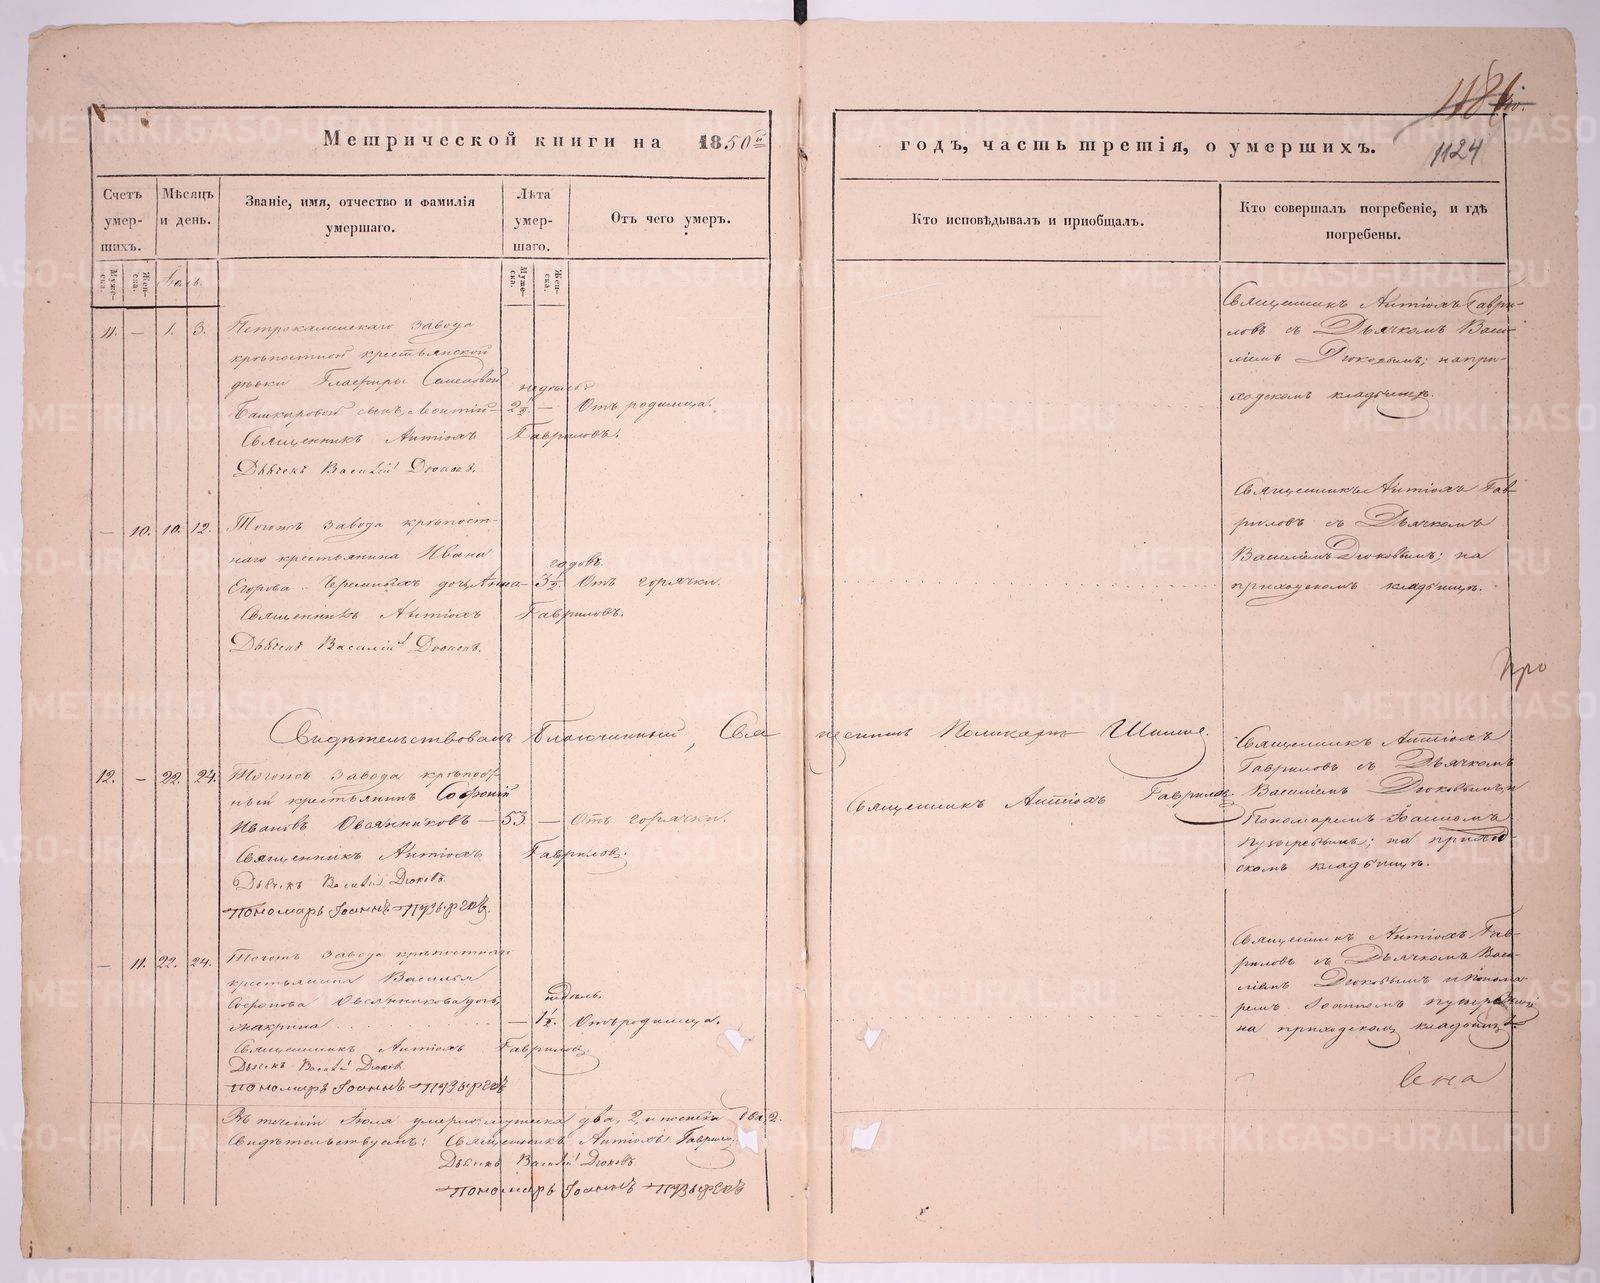 1124
Метрической книги на 1850й годъ, часть третія, о умершихъ.
Счетъ умер-шихъ.
Мѣсяцъ и день.
Званіе, имя, отчество и фамилія умершаго.
Лѣта умер-шаго.
Отъ чего умер.
Кто исповѣдывалъ и пріобщалъ.
Кто совершалъ погребеніе, и гдѣ погребены.
Муже-ска.
Жен-ска.
Іюль.
Муже-ска.
Жен-ска.
11. — 1. 3.
Петрокаменскаго завода
крѣпостной крестьянской
дѣвки Глафиры Семеновой
Башкировой сынъ
недѣль
2½ — Отъ родимца.
Священникъ Антіохъ Гавриловъ.
Дьячекъ Василій Дюковъ.
Священникъ Антіохъ Гаври-
ловъ съ Дьячкомъ Васи-
ліемъ Дюковымъ; на при-
ходскомъ кладбищѣ.
— 10. 10. 12.
Тогожъ завода крѣпост-
наго крестьянина Ивана
Егорова Ереминыхъ дочь Анна —
годовъ.
3½ Отъ горячки.
Священникъ Антіохъ Гавриловъ.
Дьячекъ Василій Дюковъ.
Священникъ Антіохъ Гав-
риловъ съ Дьячкомъ
Василіемъ Дюковымъ; на
приходскомъ кладбищѣ.
Свидѣтельствовалъ Благочинный, Священникъ Поликарпъ
12. — 22. 24.
Тогожъ завода крѣпост-
ный крестьянинъ Софроній
Ивановъ Овсянниковъ — 53. — Отъ горячки.
Священникъ Антіохъ Гавриловъ.
Дьячекъ Василій Дюковъ.
Пономарь Іоаннъ Пузыревъ.
Священникъ Антіохъ Гавриловъ.
Священникъ Антіохъ
Гавриловъ съ Дьячкомъ
Василіемъ Дюковымъ и
Пономаремъ Іоанномъ
Пузыревымъ; на приход-
скомъ кладбищѣ.
— 11. 22. 24.
Тогожъ завода крѣпостнаго
крестьянина Василья
Софронова Овсянникова дочь,
Макрина
недѣль.
— 1½. Отъ родимца.
Священникъ Антіохъ Гавриловъ.
Дьячекъ Василій Дюковъ
Пономарь Іоаннъ Пузыревъ
Священникъ Антіохъ Гав-
риловъ съ Дьячкомъ Васи-
ліемъ Дюковымъ и Понома-
ремъ Іоанномъ Пузыревымъ
на приходскомъ кладбищѣ.
Въ теченіи Іюля умерло: мужеска два, 2, и женска два, 2.
Свидѣтельствуемъ: Священникъ Антіохъ Гавриловъ
Дьячекъ Василій Дюковъ
Пономарь Іоаннъ Пузыревъ
METRIKI.GASO-URAL.RU